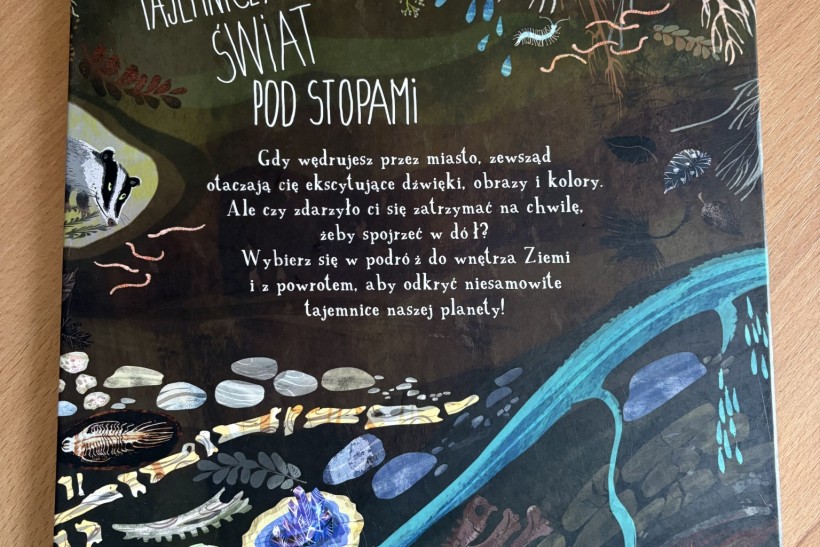 TAJEMNICZY
ŚWiAT
POD STOPAMi
Gdy wędrujesz przez miasto, zewsząd
otaczają cię ekscytujące dźwięki, obrazy i kolory.
Ale czy zdarzyło ci się zatrzymać na chwilę,
żeby spojrzeć w dół?
Wybierz się w podróż do wnętrza Ziemi
i z powrotem, aby odkryć niesamowite
tajemnice naszej planety!